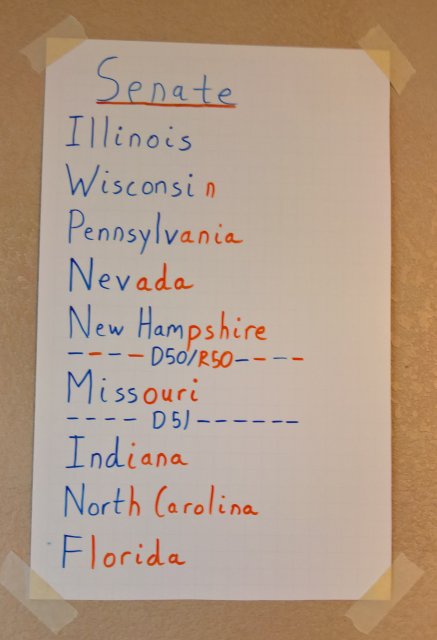 Senate
Illinois
Wisconsin
Pennsylvania
Nevada
New Hampshire
---- D50/R50-----
Missouri
---- D51------
Indiana
North Carolina
Florida